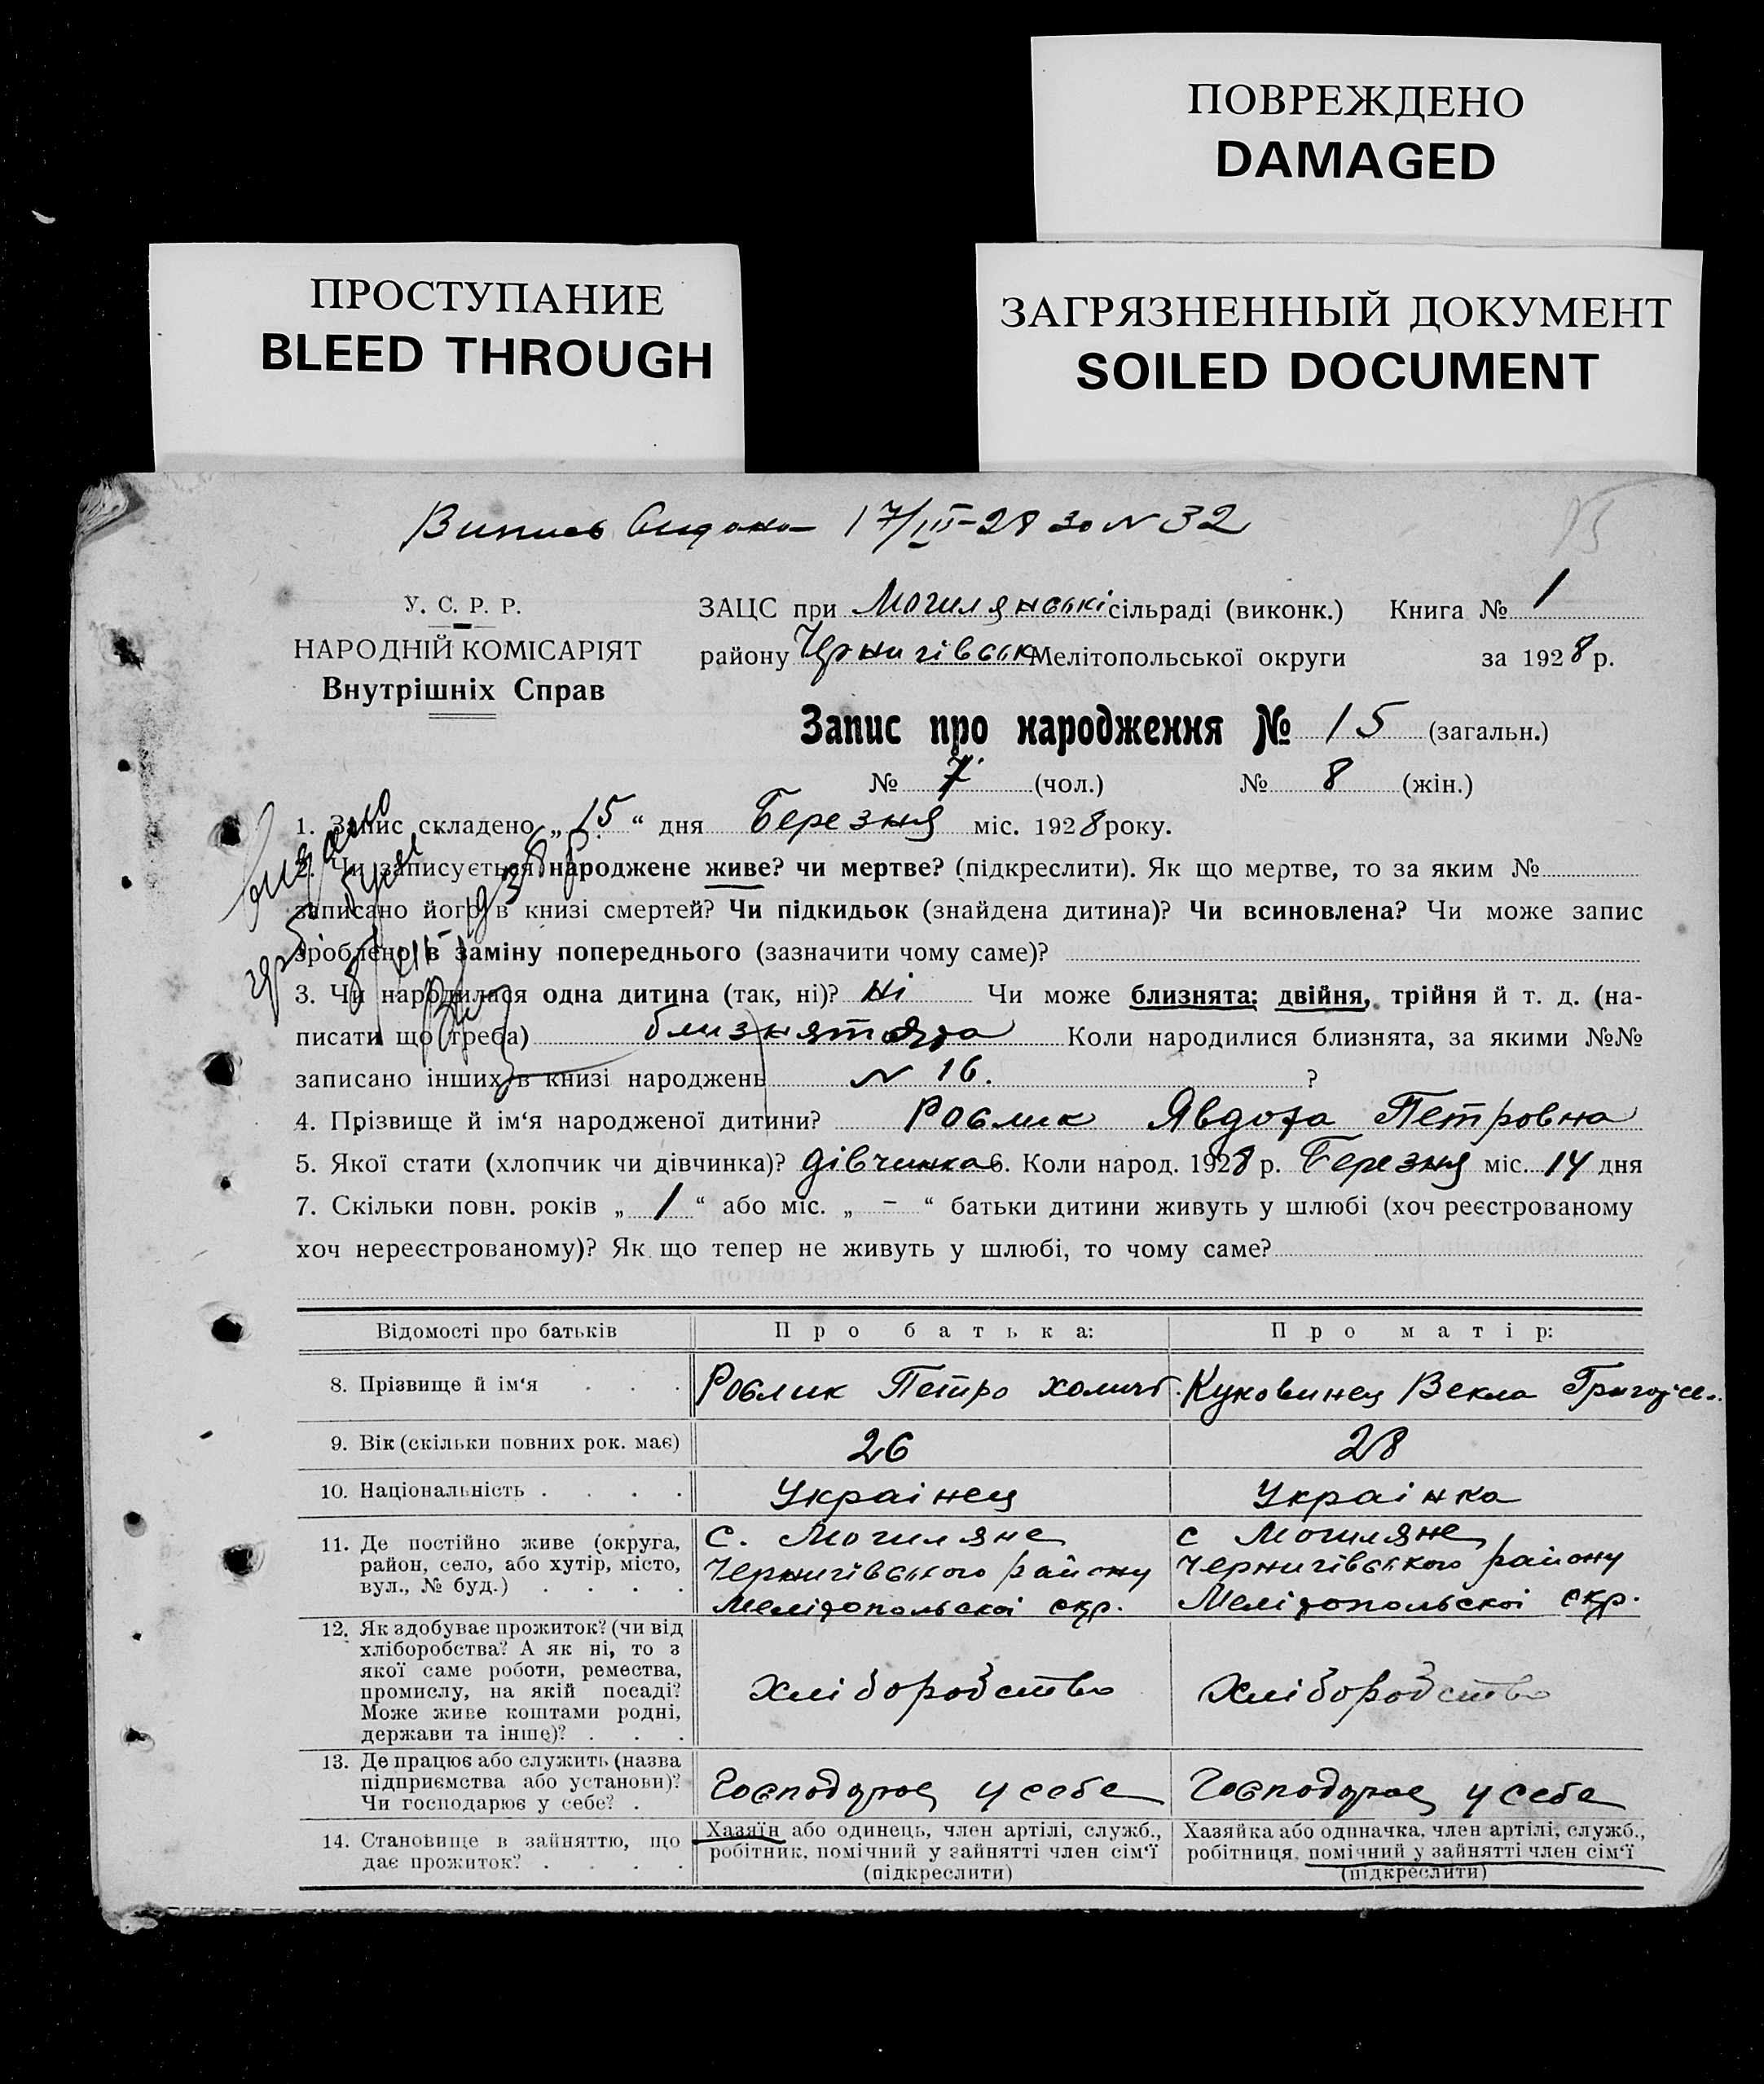 ПОВРЕЖДЕНО
DAMAGED
ПРОСТУПАНИЕ
BLEED THROUGH
ЗАГРЯЗНЕННЫЙ ДОКУМЕНТ
SOILED DOCUMENT
Випись видана 17/III-28 за N 32
15
У. С. Р. Р.
НАРОДНІЙ КОМІСАРІЯТ
Внутрішніх Справ
ЗАЦС при Могилянській сільраді (виконк.) Книга № 1
району Чернигівськ Мелітопольської округи за 1928 р.
Запис про народження № 15 (загальн.)
№ 7 (чол.) № 8 (жін.)
видано
1. Запис складено „15“ дня Березня міс. 1928 року.
2. Чи записується народжене живе? чи мертве? (підкреслити). Як що мертве, то за яким №
записано його в книзі смертей? Чи підкидьок (знайдена дитина)? Чи всиновлена? Чи може запис
зроблено в заміну попереднього (зазначити чому саме)?
3. Чи народилася одна дитина (так, ні)? ні Чи може близнята: двійня, трійня й т. д. (на-
писати що треба) близнята Коли народилися близнята, за якими №№
записано інших в книзі народжень N 16. ?
4. Прізвище й ім‘я народженої дитини? Роблик Явдота Петровна
5. Якої стати (хлопчик чи дівчинка)? дівчинка 6. Коли народ. 1928 р. Березня міс. 14 дня
7. Скільки повн. років „ 1 “ або міс. „ - “ батьки дитини живуть у шлюбі (хоч реєстрованому
хоч нереєстрованому)? Як що тепер не живуть у шлюбі, то чому саме?
Відомості про батьків Про батька: Про матір:
8. Прізвище й ім‘я . . . Роблик Петро Куковинец Векла
9. Вік (скільки повних рок. має) 26 28
10. Національність . . . . Украінец Украінка
11. Де постійно живе (округа, с. Могиляне с Могиляне
район, село, або хутір, місто, Чернигівського району Чернигівського району
вул., № буд.) . . . . Мелітопольскоі окр. Мелітопольскоі окр.
12. Як здобуває прожиток? (чи від
хліборобства? А як ні, то з
якої саме роботи, ремества,
промислу, на якій посаді? хліборобство хліборобство
Може живе коштами родні,
держави та інше)? . . .
13. Де працює або служить (назва
підприємства або установи)? Господарює у себе Господарює у себе
Чи господарює у себе? .
14. Становище в зайняттю, що Хазяїн або одинець, член артілі, служб., Хазяйка або одиначка, член артілі, служб.,
дає прожиток? . . . . робітник, помічний у зайнятті член сім‘ї робітниця, помічний у зайнятті член сім‘ї
(підкреслити) (підкреслити)